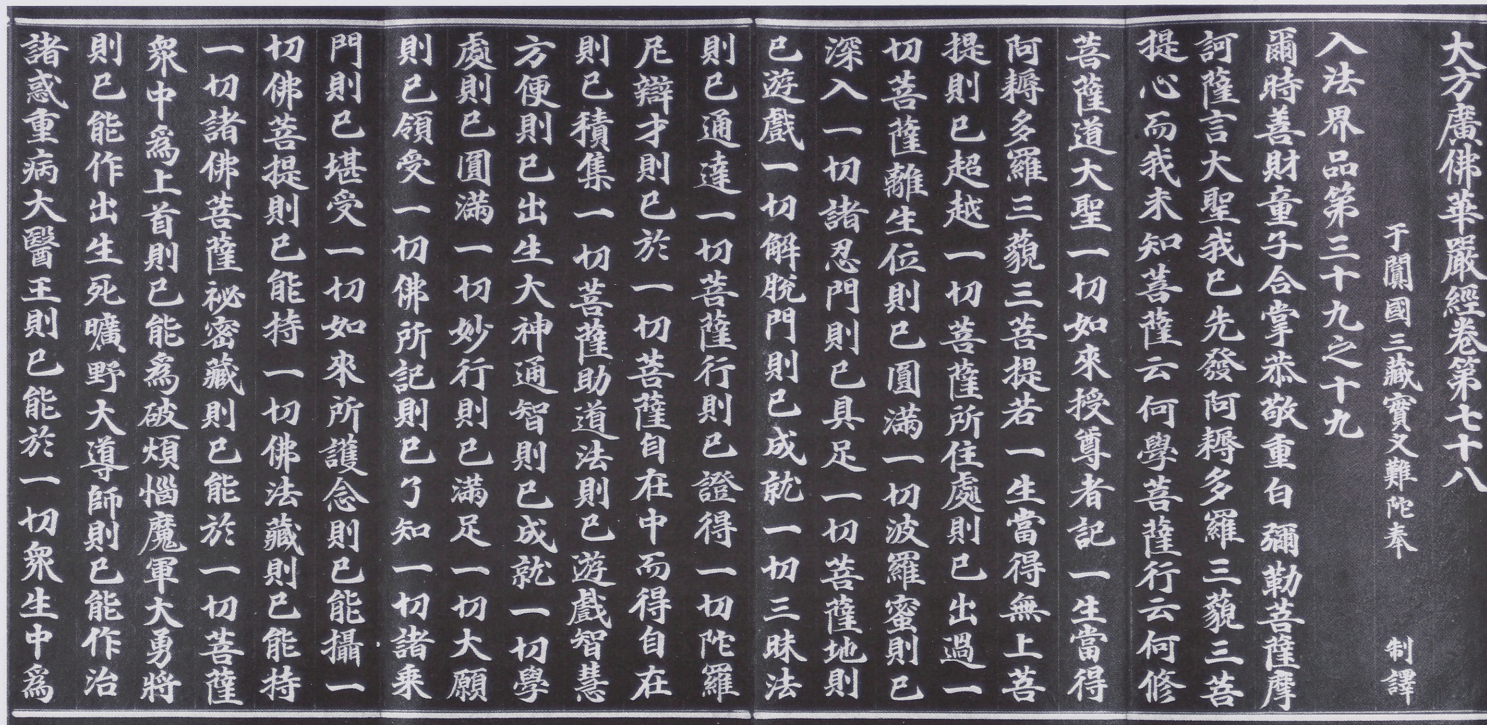 大方廣佛華嚴經卷第七十八
于闐國三藏實叉難陀奉 制譯
入法界品第三十九之十九
爾時善財童子合掌恭敬重白彌勒菩薩摩
訶薩言大聖我已先發阿耨多羅三藐三菩
提心而我未知菩薩云何學菩薩行云何修
菩薩道大聖一切如來授尊者記一生當得
阿耨多羅三藐三菩提若一生當得無上菩
提則已超越一切菩薩所住處則已出過一
切菩薩離生位則已圓滿一切波羅蜜則已
深入一切諸忍門則已具足一切菩薩地則
已遊戲一切解脫門則已成就一切三昧法
則已通達一切菩薩行則已證得一切陀羅
尼辯才則已於一切菩薩自在中而得自在
則已積集一切菩薩助道法則已遊戲智慧
方便則已出生大神通智則已成就一切學
處則已圓滿一切妙行則已滿足一切大願
則已領受一切佛所記則已了知一切諸乘
門則已堪受一切如來所護念則已能攝一
切佛菩提則已能持一切佛法藏則已能持
一切諸佛菩薩祕密藏則已能於一切菩薩
衆中爲上首則已能爲破煩惱魔軍大勇將
則已能作出生死曠野大導師則已能作治
諸惑重病大醫王則已能於一切衆生中爲